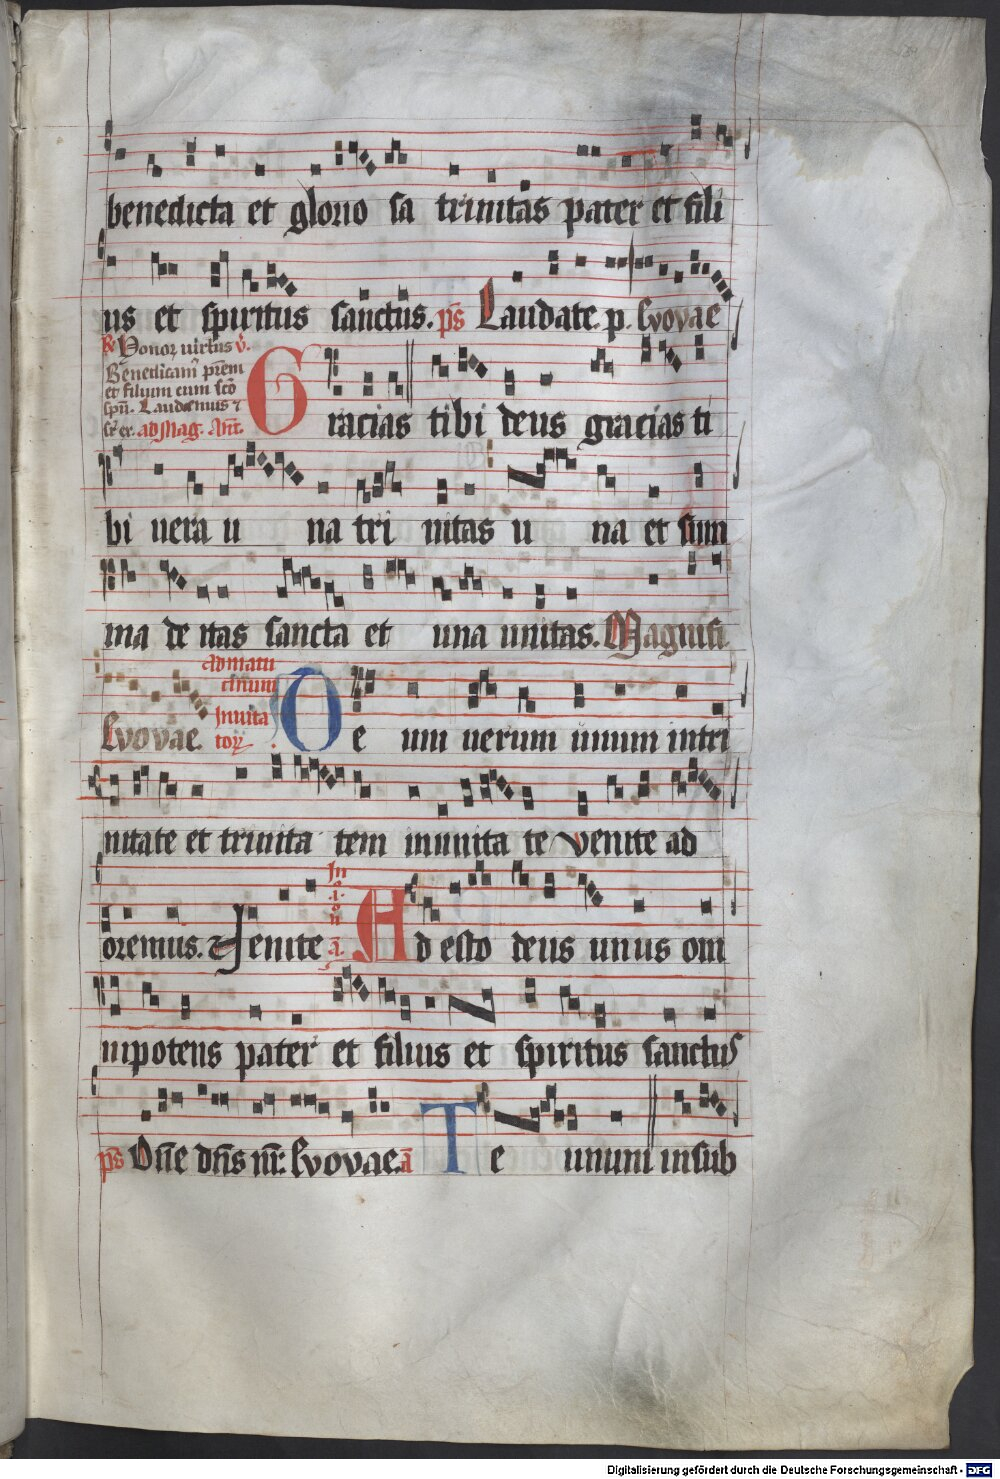 benedicta et glorio sa trinitas pater et fili
us et spiritus sanctus. ps Laudate. p. Evovae
R Honor uirtus v.
Benedicam prem
et filium cum sco
spu. Laudemus 7
ad Mag. Ant.
Gracias tibi deus gracias ti
bi uera u na tri nitas u na et sum
ma de itas sancta et una unitas. Magnifi
Evovae.
Ad matu
tinum
Inuita
tor
De um uerum unum in tri
nitate et trinita tem in unita te venite ad
oremus. Venite
In
.i.
o
n
a
Ad esto deus unus om
nipotens pater et filius et spiritus sanctus
ps Dne dns nr. Evovae. a Te unum in sub
Digitalisierung gefördert durch die Deutsche Forschungsgemeinschaft - DFG